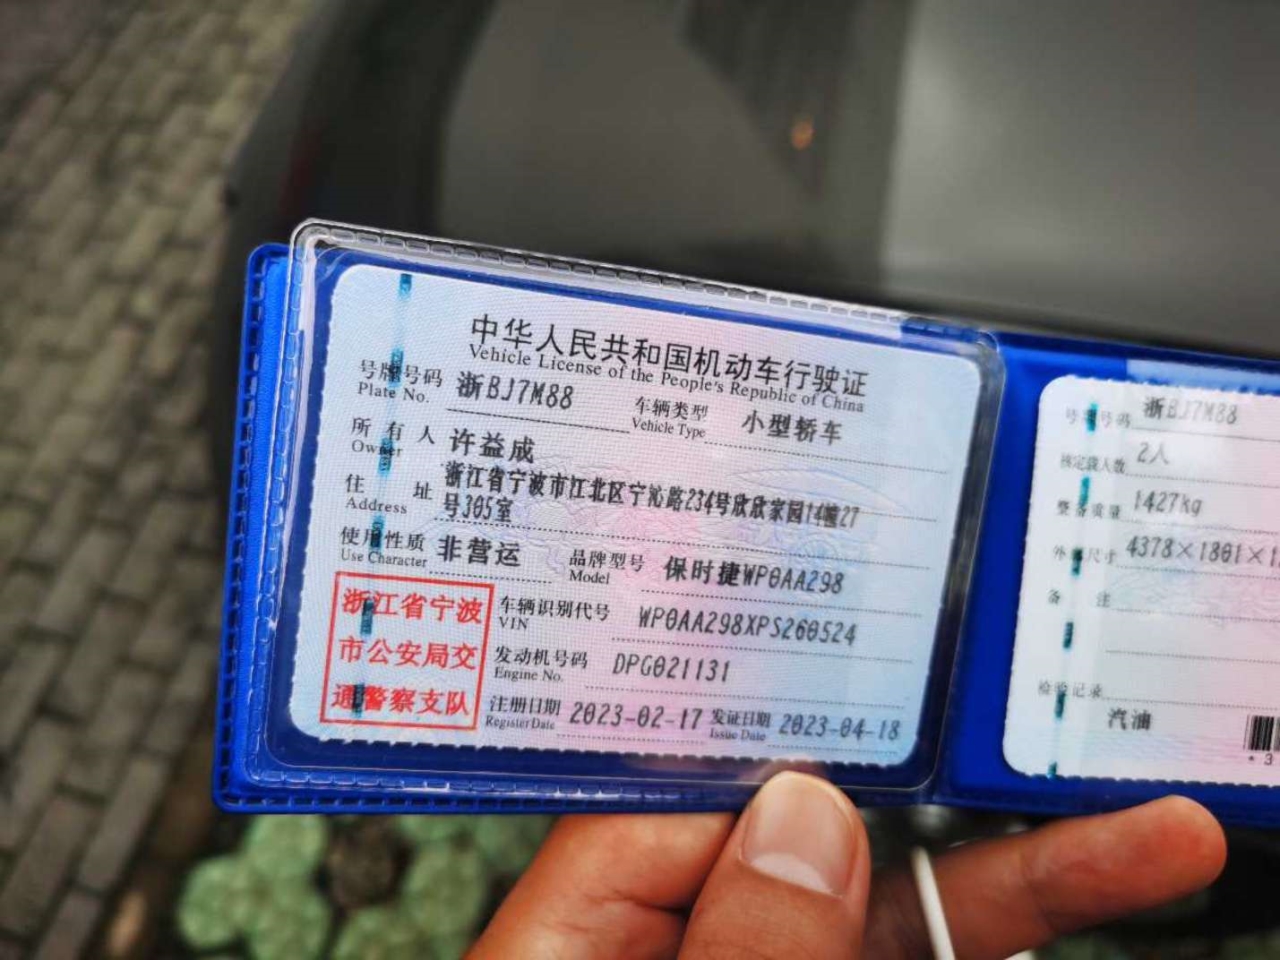 中华人民共和国机动车行驶证
Vehicle License of the People's Republic of China
号牌号码 浙BJ7M88 车辆类型 小型轿车
Plate No. Vehicle Type
所有人 许益成
Owner
住址 浙江省宁波市江北区宁沁路234号欣欣家园14幢27
Address 号305室
使用性质 非营运 品牌型号 保时捷WP0AA298
Use Character Model
浙江省宁波
市公安局交
通警察支队
车辆识别代号 WP0AA298XPS260524
VIN
发动机号码 DPG021131
Engine No.
注册日期 2023-02-17 发证日期 2023-04-18
Register Date Issue Date
号牌号码 浙BJ7M88
核定载人数 2人
整备质量 1427kg
外廓尺寸 4378×1801×1
备注
检验记录
汽油
* 3